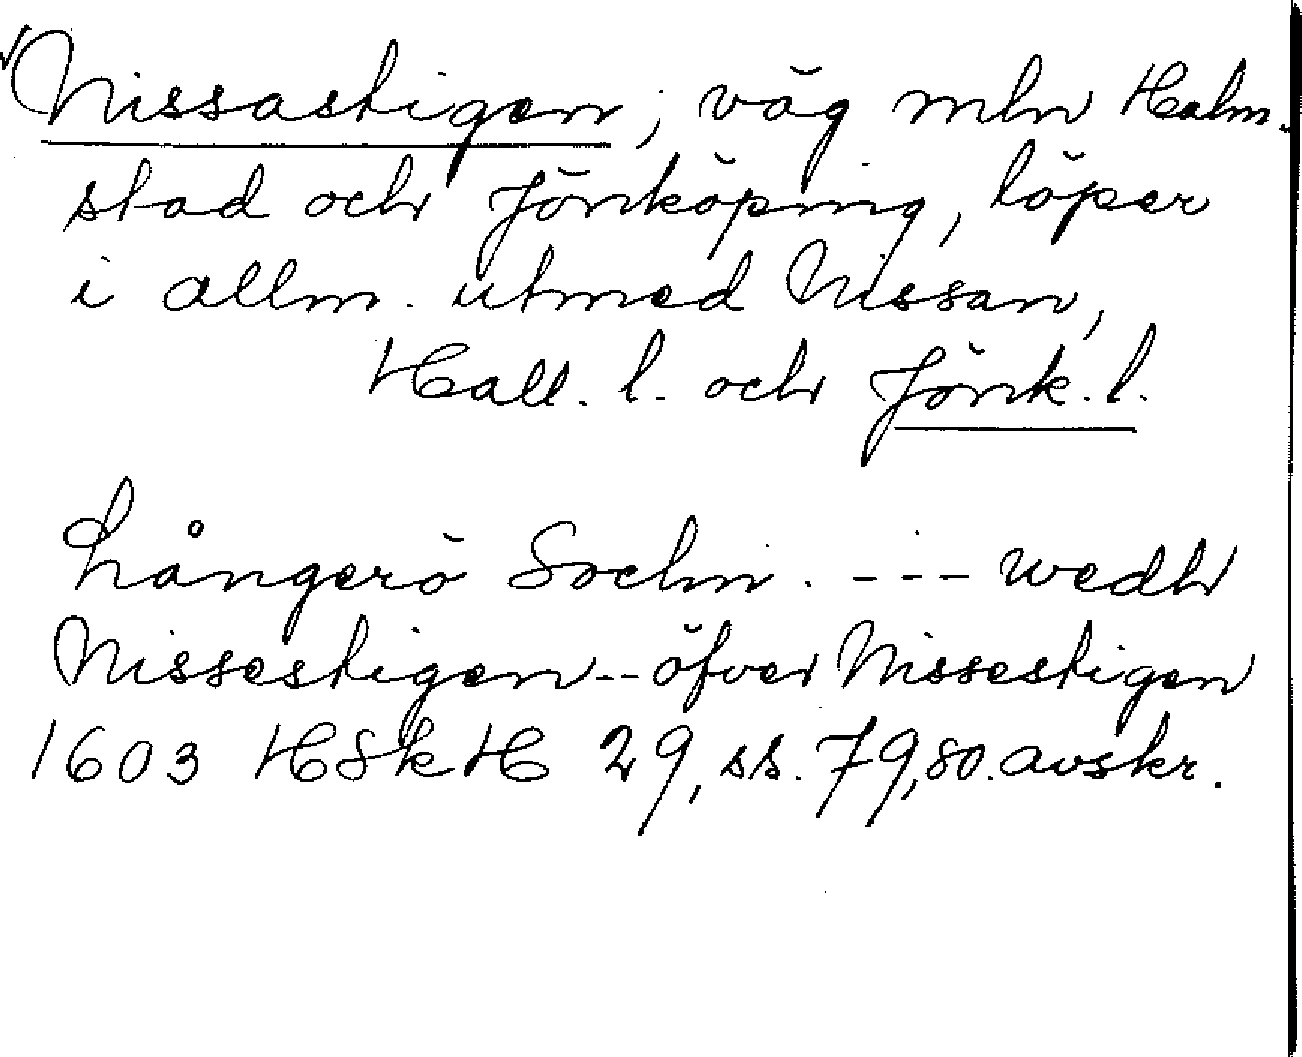 Nissastigen, väg mln Halm-
stad och Jönköping, löper
i allm. utmed Nissan,
Hall. l. och Jönk. l.
Långerö Sochn. --- wedh
Nissestigen -- öfver Nissestigen
1603 HSkH 29, ss. 79,80. avskr.